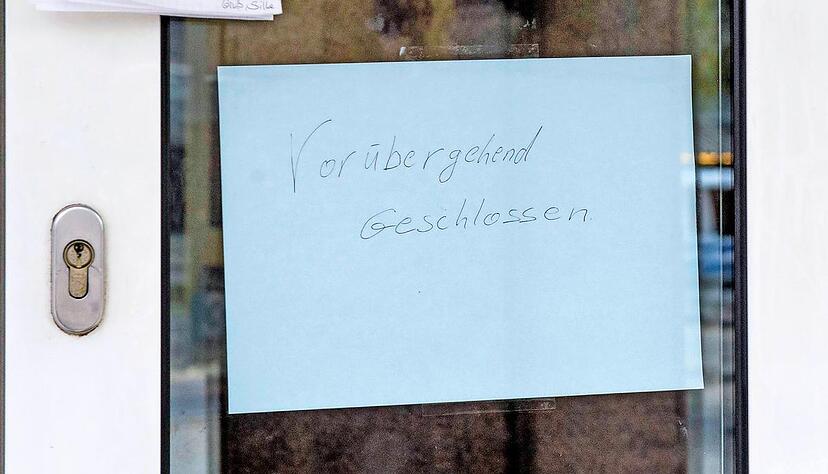 Gruß, Silke
Vorübergehend
Geschlossen.